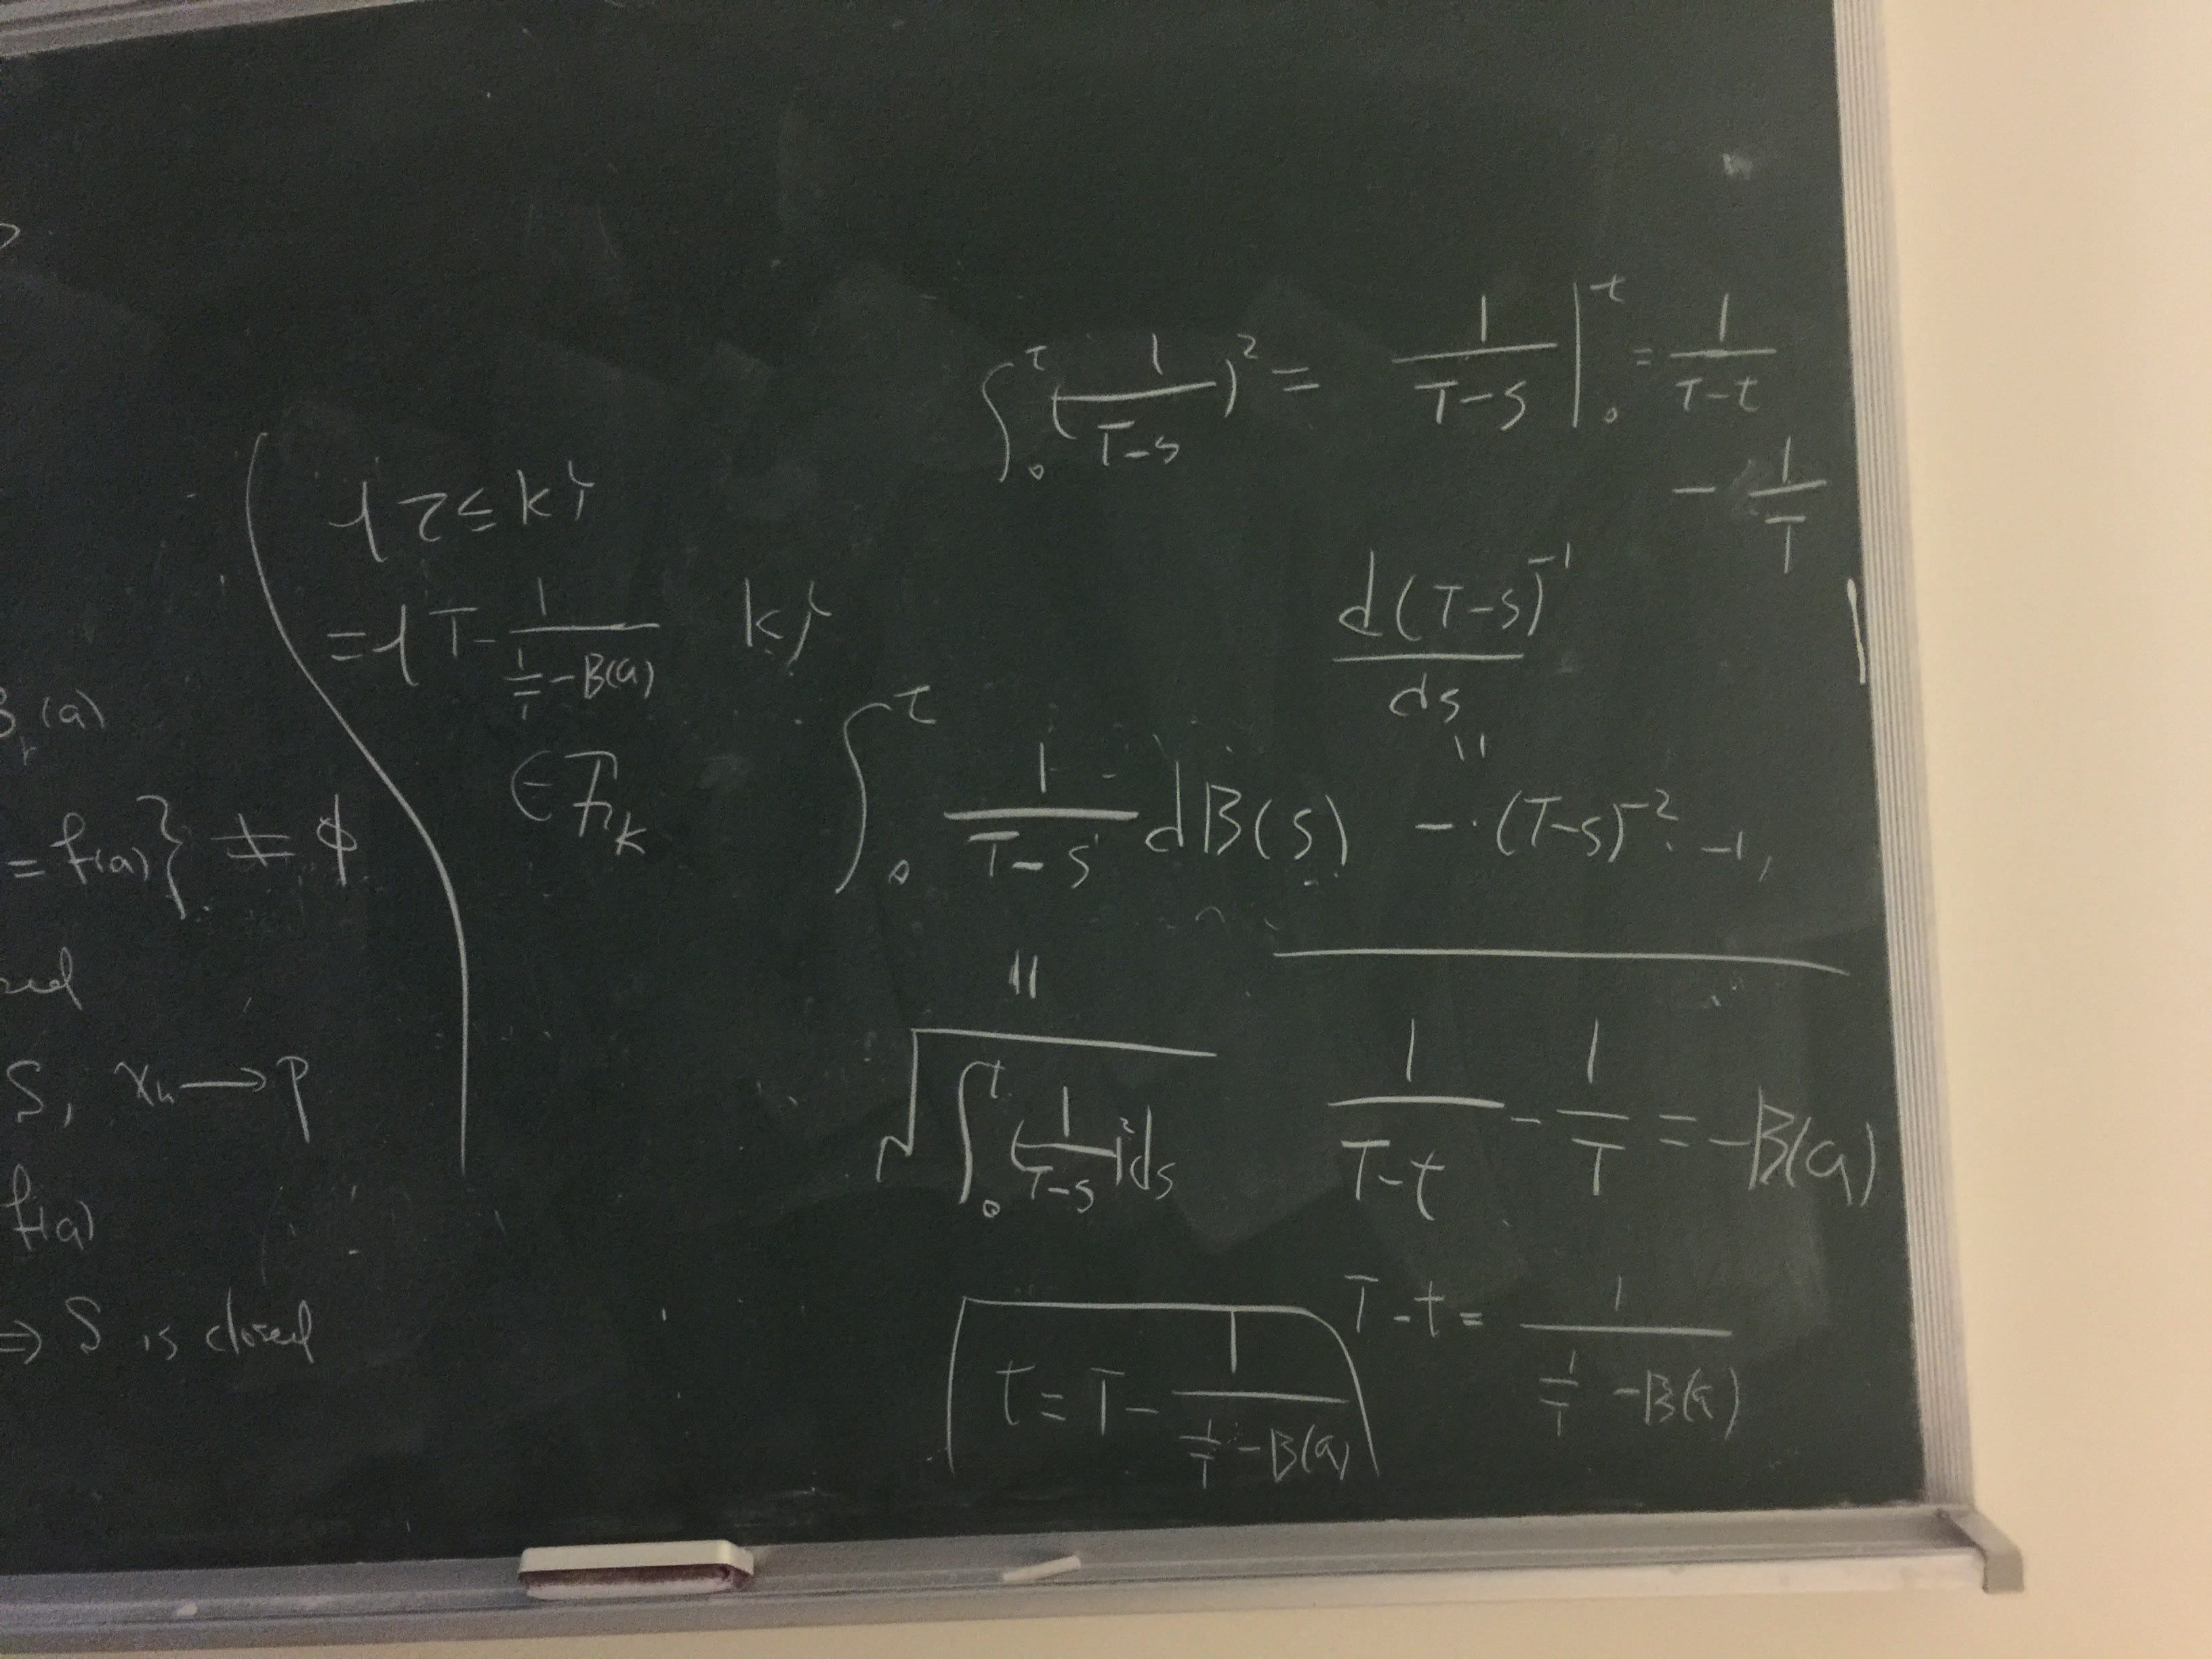 B_r(a)
= f(a)} ≠ ϕ
S, x_n → p
f(a)
⇒ S is closed
{τ ≤ k}
= {T - 1/(1/T - B(a)) k}
∈ F_k
∫_0^t (1/(T-s))^2 = 1/(T-s) |_0^t = 1/(T-t)
- 1/T
d(T-s)^{-1}/ds
∫_0^t 1/(T-s) dB(s)
"
- · (T-s)^{-2} · -1
"
√(∫_0^t (1/(T-s))^2 ds)
1/(T-t) - 1/T = -B(a)
T-t = 1/(1/T - B(a))
t = T - 1/(1/T - B(a))